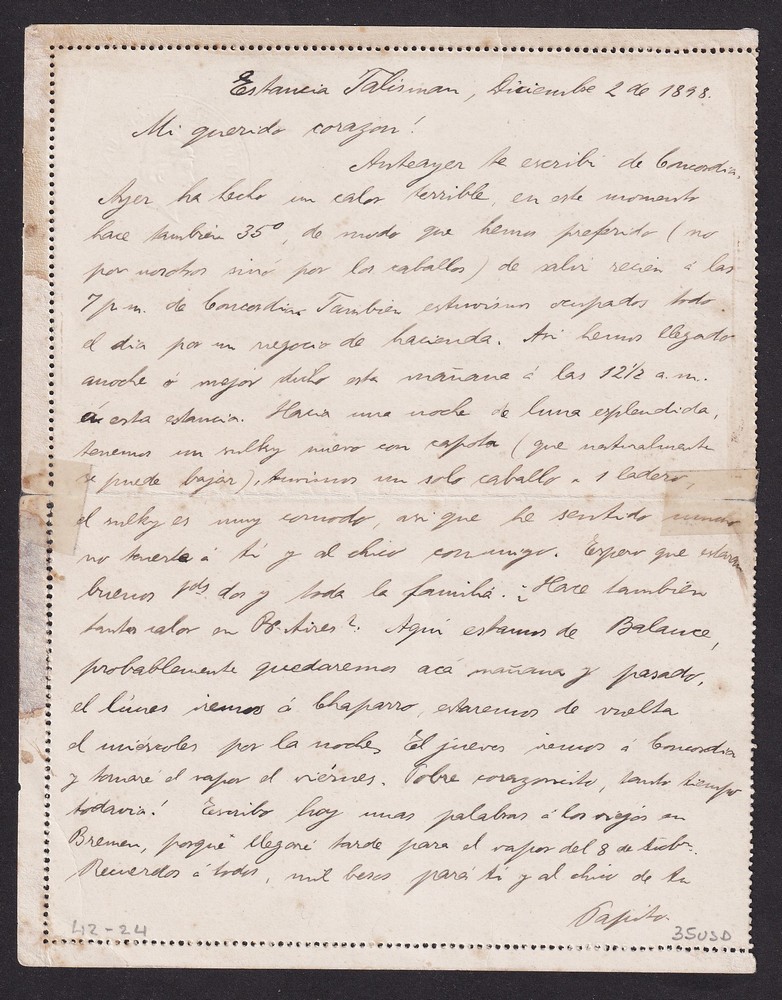 Estancia Talisman, Diciembre 2 de 1898.
Mi querido corazon!
Anteayer te escribi de Concordia.
Ayer ha hecho un calor terrible, en este momento
hace tambien 35°, de modo que hemos preferido (no
por nosotros sinó por los caballos) de salir recien á las
7 p.m. de Concordia. Tambien estuvimos ocupados todo
el dia por un negocio de hacienda. Asi hemos llegado
anoche ó mejor dicho esta mañana á las 12½ a.m.
á esta estancia. Hacia una noche de luna esplendida,
tenemos un sulky nuevo con capota (que naturalmente
se puede bajar), tuvimos un solo caballo a 1 ladero,
el sulky es muy comodo, asi que he sentido mucho
no tenerte á ti y al chico conmigo. Espero que estaran
buenos Vds dos y toda la familia. ¿Hace tambien
tanto calor en Bs Aires? Aqui estamos de Balance,
probablemente quedaremos acá mañana y pasado,
el lúnes iremos á Chaparro, estaremos de vuelta
el miércoles por la noche. El jueves iremos á Concordia
y tomaré el vapor el viérnes. Pobre corazoncito, tanto tiempo
todavia! Escribo hoy unas palabras á los viejos en
Bremen, porque llegaré tarde para el vapor del 8 de
Recuerdos á todos, mil besos para ti y al chico de tu
Papito.
42-24
35USD